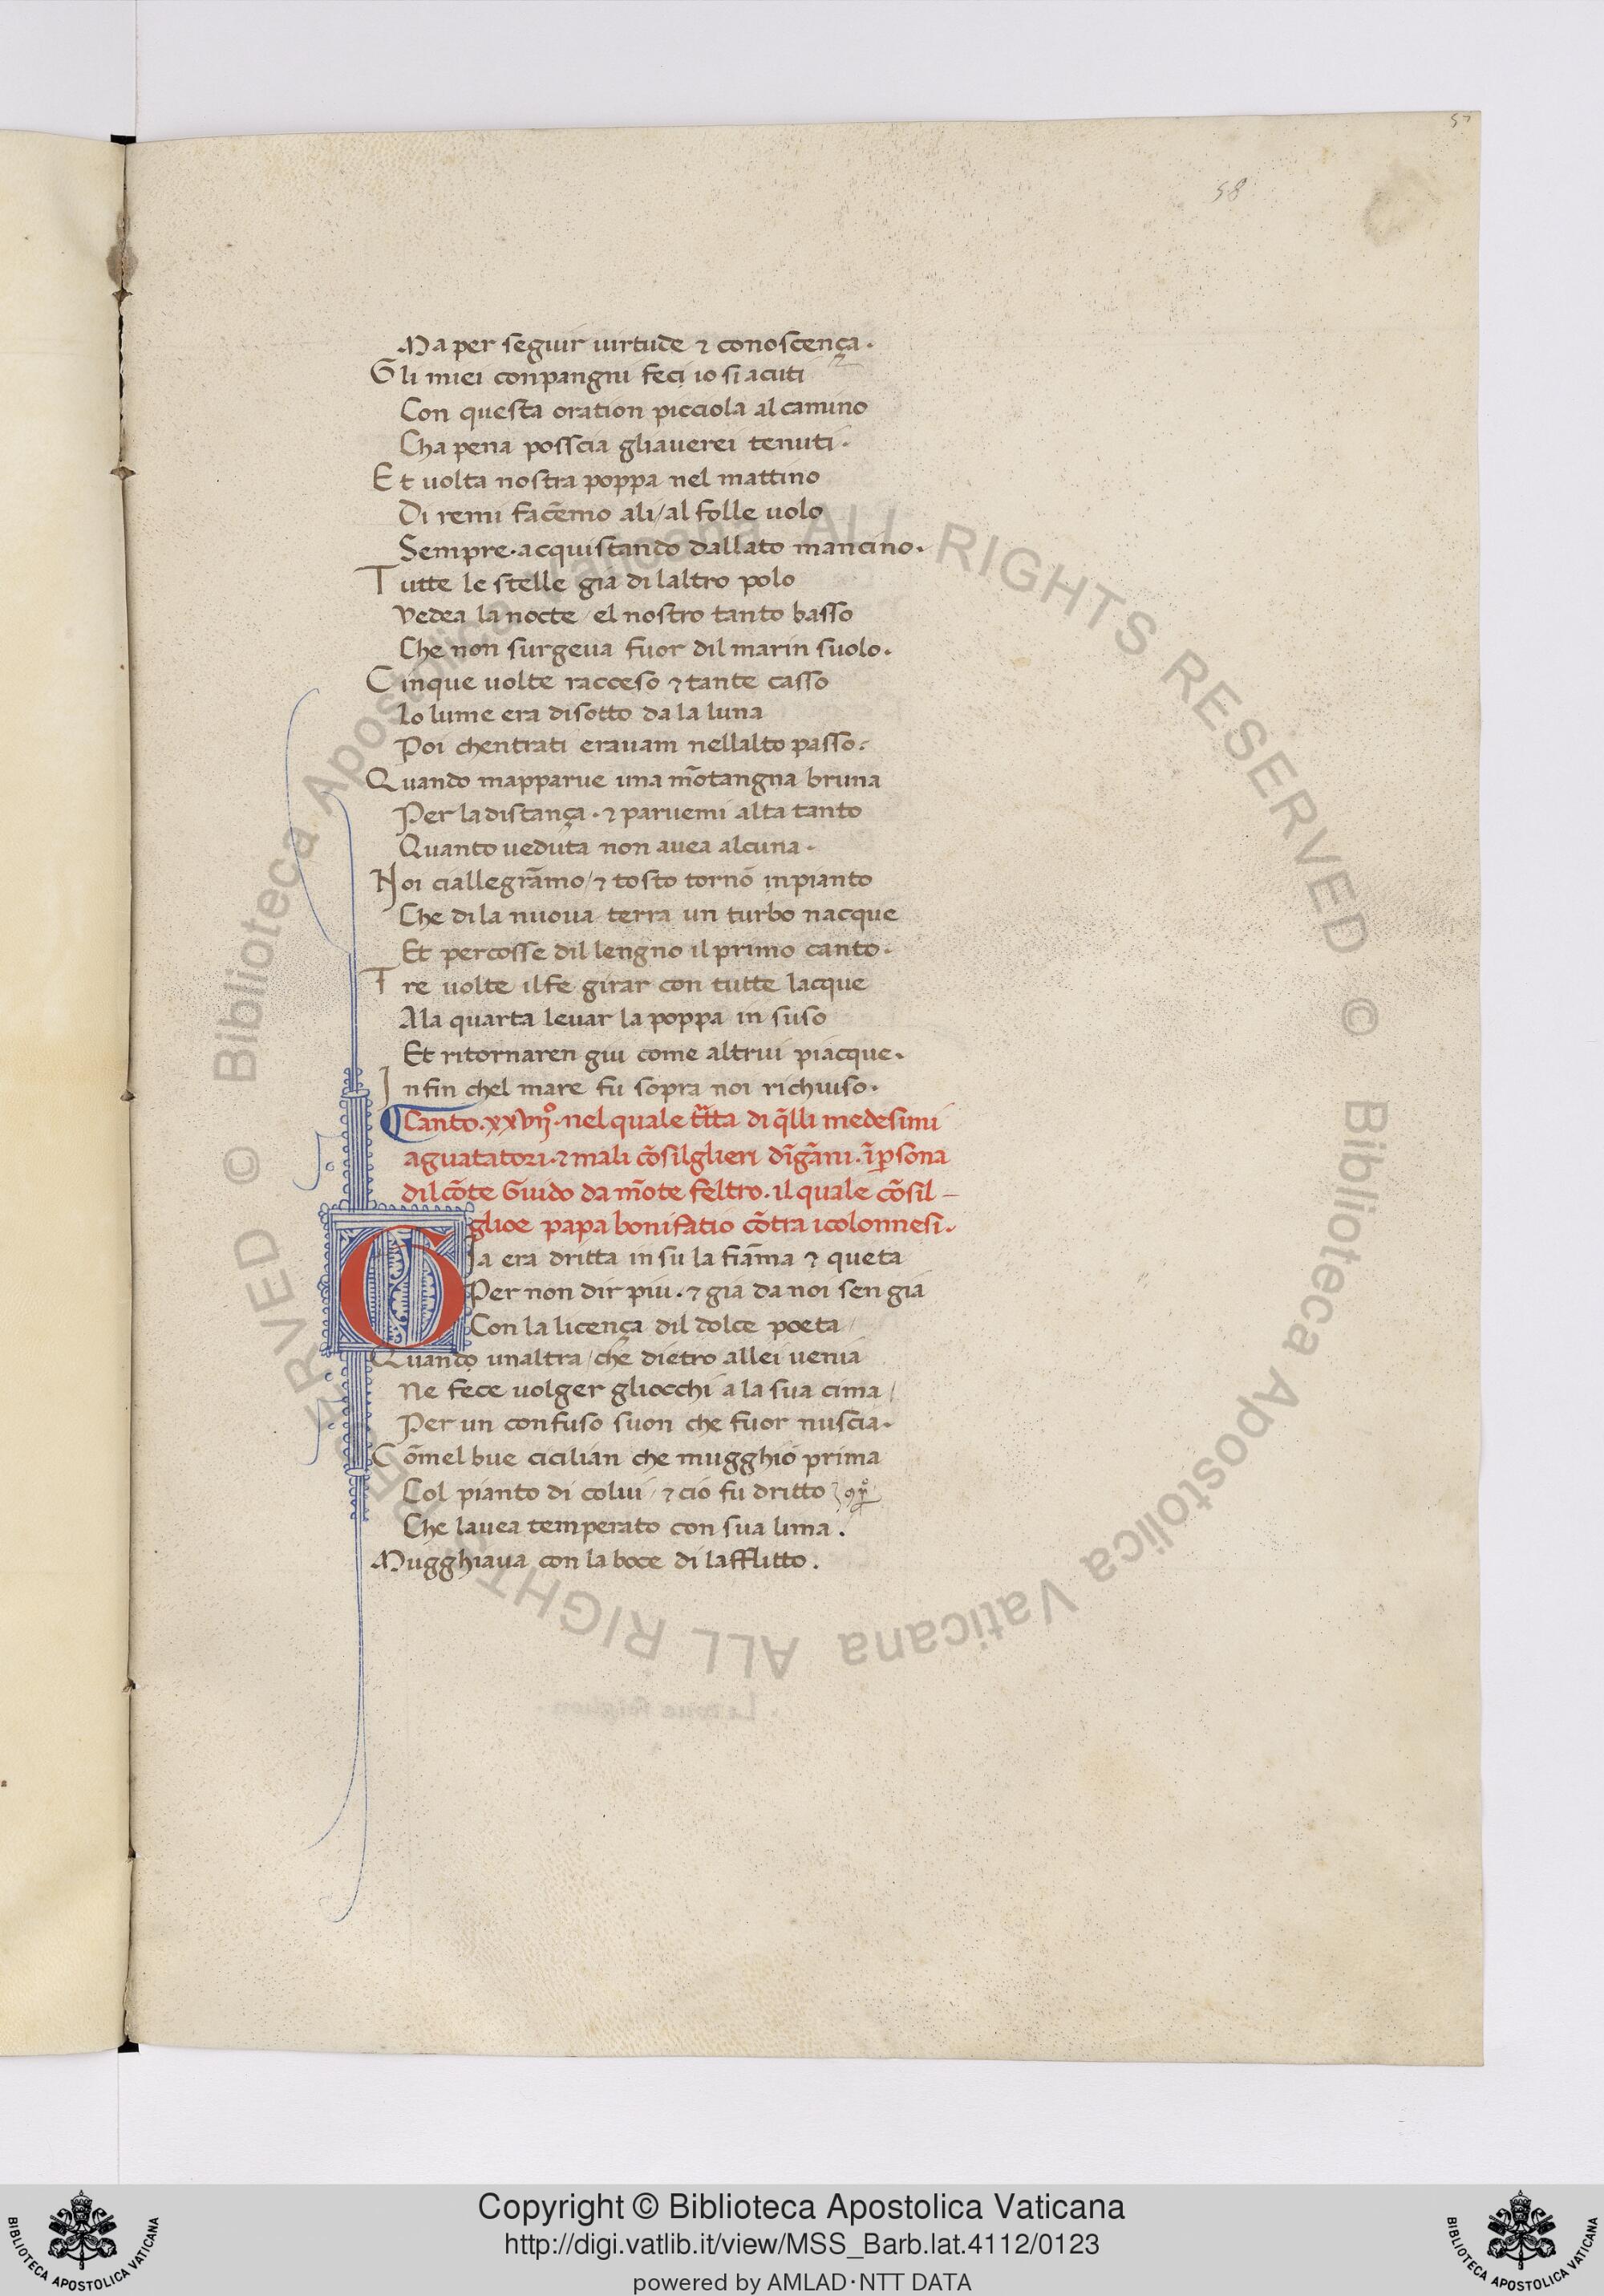 57
58
Ma per seguir uirtude ⁊ conoscença.
Gli miei conpangni feci io si acuti
Con questa oration picciola al camino
Cha pena posscia gliauerei tenuti.
Et uolta nostra poppa nel mattino
Di remi facẽmo ali/al folle uolo
Sempre.acquistando dallato mancino.
Tutte le stelle gia di laltro polo
Vedea la nocte/el nostro tanto basso
Che non surgeua fuor dil marin suolo.
Cinque uolte racceso ⁊ tante casso
Lo lume era disotto da la luna
Poi chentrati erauam nellalto passo.
Quando mapparue una mõtangna bruna
Per la distança.⁊ paruemi alta tanto
Quanto ueduta non auea alcuna.
Noi ciallegrãmo/⁊ tosto tornò inpianto
Che di la nuoua terra un turbo nacque
Et percosse dil lengno il primo canto.
Tre uolte il fe girar con tutte lacque
Ala quarta leuar la poppa in suso
Et ritornaren giu come altrui piacque.
Infin chel mare fu sopra noi richiuso.
Canto.xxvijº.nel quale tᷓtta di q̃lli medesimi
aguatatori.⁊ mali cõsilglieri dĩgãni.ĩ ꝑsona
dil cõte Guido da mõte feltro.il quale cõsil-
glioe papa bonifatio cõtra icolonnesi.
Gia era dritta in su la fiãma ⁊ queta
Per non dir piu.⁊ gia da noi sen gia
Con la licença dil dolce poeta/
Quando unaltra/che dietro allei uenia
Ne fece uolger gliocchi a la sua cima/
Per un confuso suon che fuor nuscia.
Cõmel bue cicilian che mugghiò prima
Col pianto di colui/⁊ ciò fu dritto
Che lauea temperato con sua lima.
Mugghiaua con la boce di lafflitto.
© Biblioteca Apostolica Vaticana ALL RIGHTS RESERVED © Biblioteca Apostolica Vaticana ALL RIGHTS RESERVED
Copyright © Biblioteca Apostolica Vaticana
http://digi.vatlib.it/view/MSS_Barb.lat.4112/0123
powered by AMLAD·NTT DATA
BIBLIOTECA APOSTOLICA VATICANA
BIBLIOTECA APOSTOLICA VATICANA